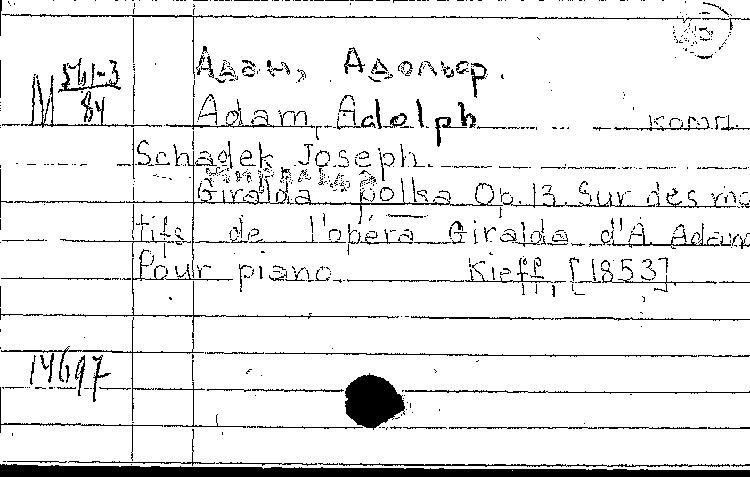 М 561-3/84
Адам, Адольф.
Adam, Adolph комп.
Schadek Joseph.
Giralda polka Op. 13 Sur des mo
tifs de l'opéra Giralda d'A Adam
Pour piano Kieff, [1853]
14697